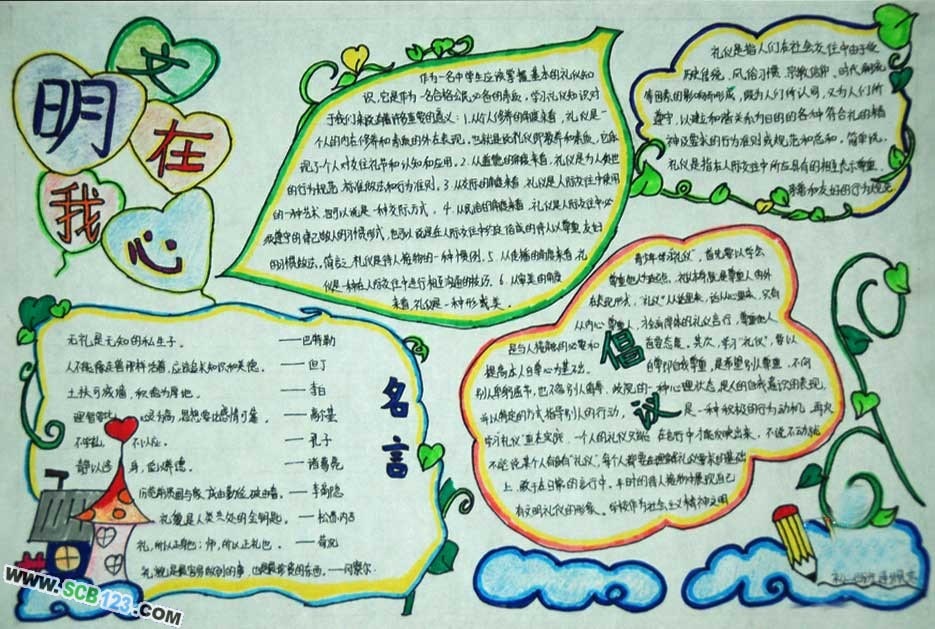 文
明
在
我
心
作为一名中学生应该掌握基本的礼仪知
识,它是作为一名合格公民必备的素质,学习礼仪知识对
于我们来说有着非常重要的意义:1.从个人修养的角度来看,礼仪是一
个人的内在修养和素质的外在表现,也就是说礼仪即教养和素质,它体
现了个人对交往礼节和认知和应用。2.从道德的角度来看,礼仪是为人处世
的行为规范 标准做法和行为准则。3.从交际的角度来看,礼仪是人际交往中使用
的一种艺术,也可以说是一种交际方式。4.从民俗的角度来看,礼仪是人际交往中必
须遵守的律己敬人的习惯形式,也可以说是在人际交往中约定俗成的待人以尊重 友好
的习惯做法。简言之,礼仪是待人接物的一种惯例。5.从传播的角度来看,礼
仪是一种在人际交往中进行相互沟通的技巧。6.从审美的角度
来看,礼仪是一种形式美。
礼仪是指人们在社会交往中由于受
历史传统,风俗习惯,宗教信仰,时代潮流
等因素的影响而形成,既为人们所认同,又为人们所
遵守,以建立和谐关系为目的的各种符合礼的精
神及要求的行为准则或规范和总和。简单说,
礼仪是指在人际交往中所应具有的相互表示尊重
亲善和友好的行为规范
青少年讲“礼仪”,首先要以学会
尊重他人为起点,礼仪本身就是尊重人的外
在表现形式,“礼仪”从话里来,话从心里来,只有
从内心尊重人,才会有得体的礼仪言行,尊重他人
是与人接触的必要和首要态度。其次,学习“礼仪”,要以
提高自人自尊心为基础。自尊即自我尊重,是希望别人尊重,不向
别人卑躬屈节,也不容别人侮辱、歧视的一种心理状态,是人的自我意识的表现,
并以特定的方式指导别人的行动,是一种积极的行为动机,再次
学习“礼仪”重在实践,一个人的礼仪只能在言行中才能反映出来,不说不动就
不能说某个人有啥“礼仪”,每个人都要在理解礼仪要求的基础
上,敢于在日常的言行中,平时的待人接物中展现自己
有文明礼仪的形象。学校作为社会主义精神文明
倡
议
名
言
无礼是无知的私生子。 ——巴特勒
人不能像走兽那样活着,应该追求知识和美德。 ——但丁
土扶可成墙,积德为厚地。 ——李白
——高尔基
不学礼, 不以立。 ——孔子
静以修身,俭以养德。 ——诸葛亮
历览前贤国与家,成由勤俭破由奢。——李商隐
礼貌是人类共处的金钥匙。 ——松苏内吉
礼,所以正身也;师,所以正礼也。 ——荀况
礼貌是最容易做到的事,也是最珍贵的东西。——冈察尔
www.SCB123.COM